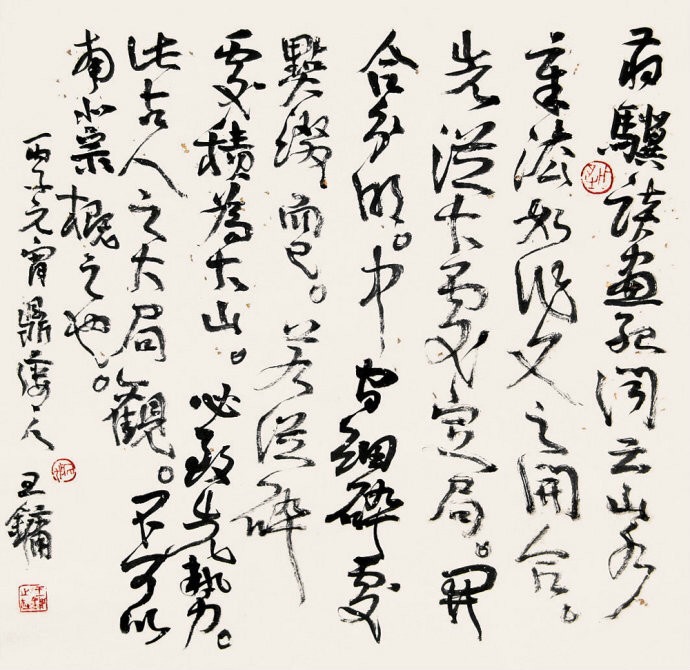 蔣驥讀畫紀聞云山水
章法如作文之開合。
先從大處定局。開
合分明。中間細碎處
點綴而已。若從碎
處積為大山。必致失勢。
此古人之大局觀。不可以
南北宗概之也。
丙子元宵鼎樓主人王鏞